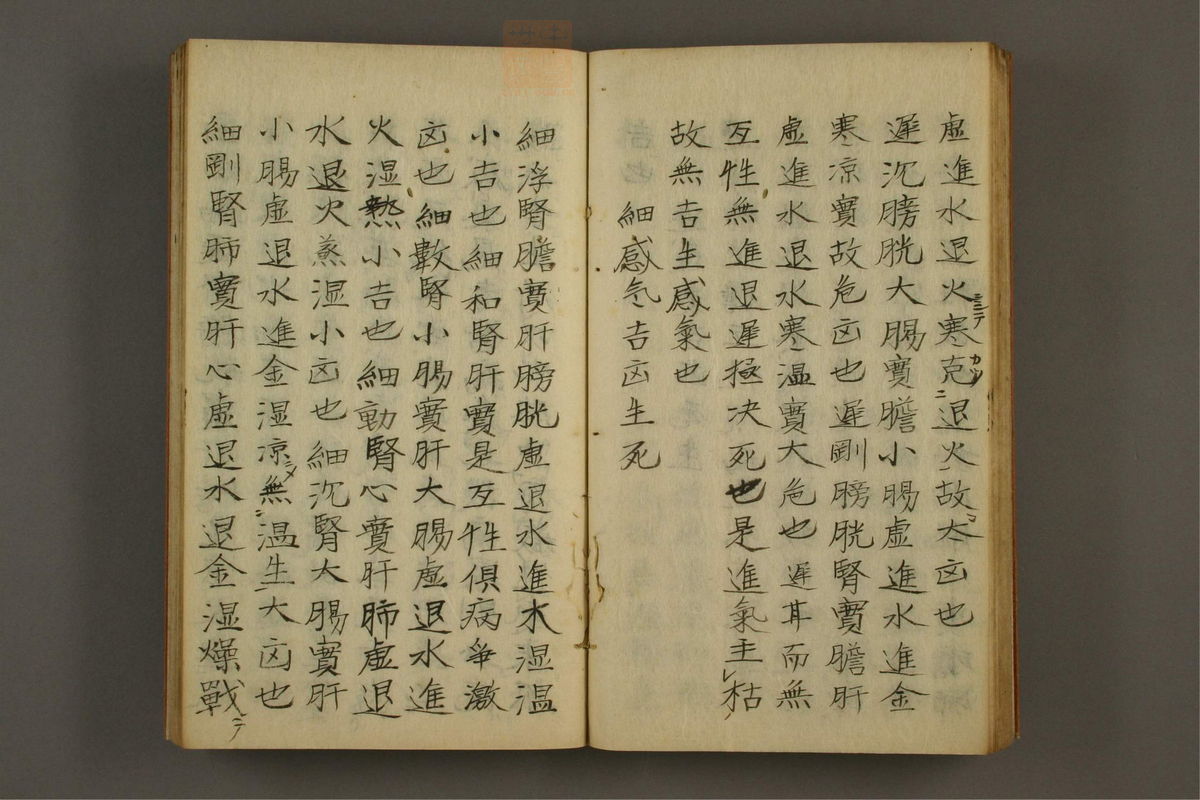 虚進水退火寒克退火故大凶也
遅沉膀胱大腸實膽小腸虚進水進金
寒凉實故危凶也遅剛膀胱腎實膽肝
虚進水退水寒温實大危也遅耳而無
互性無進退遅極决死也是進氣主枯
故無吉生感氣也
細感気吉凶生死
細浮腎膽實肝膀胱虚退水進木湿温
小吉也細和腎肝實是互性俱病争激
凶也細數腎小腸實肝大腸虚退水進
火湿熱小吉也細動腎心實肝肺虚退
水退火蒸湿小凶也細沉腎大腸實肝
小腸虚退水進金湿凉無温生大凶也
細剛腎肺實肝心虚退水退金湿燥戰